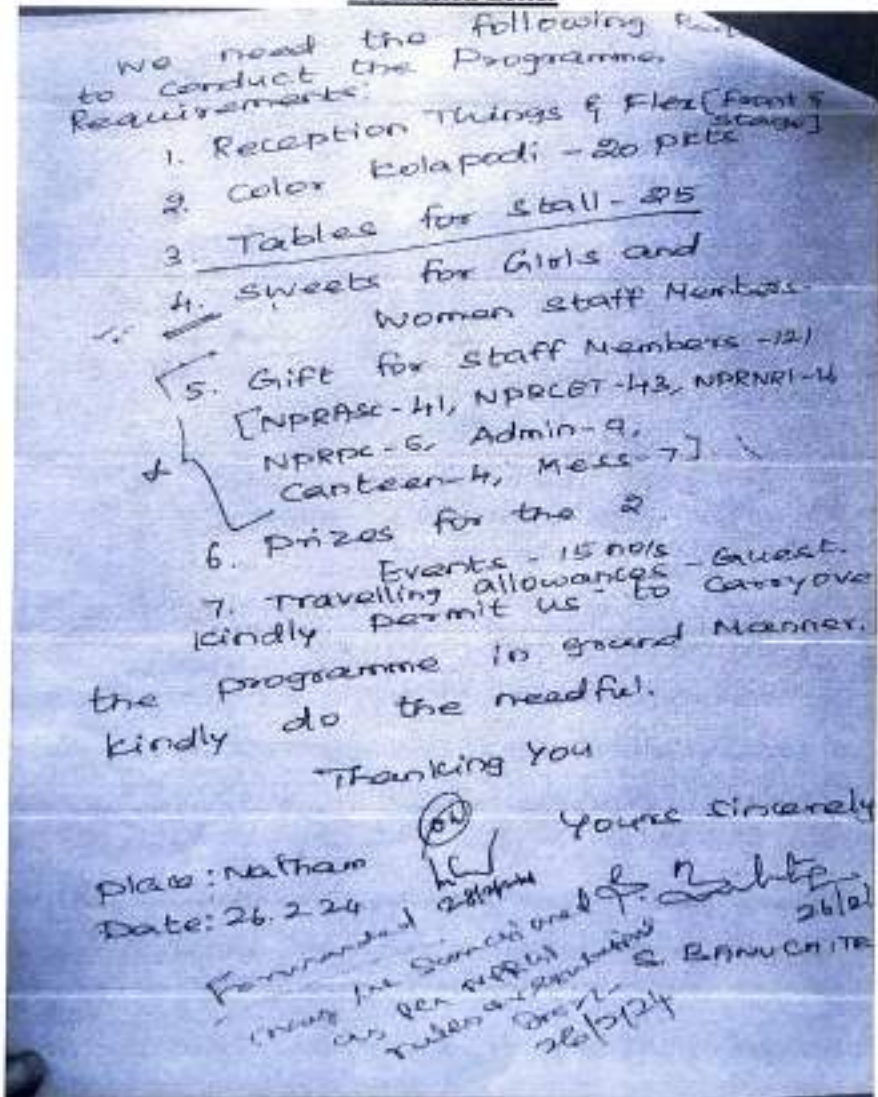 We need the following
to conduct the Programme.
Requirements:
1. Reception Things & Flex [front &
stage]
2. Color kolapodi - 20 pkts
3. Tables for stall - 25
4. Sweets for Girls and
Women staff Members.
5. Gift for staff Members - 121
[NPRASC - 41, NPRCET - 43, NPRNRI -
NPRPC - 6, Admin - 9,
Canteen - 4, Mess - 7]
6. Prizes for the 2
Events - 15 no's
7. Travelling allowances - Guest.
kindly permit us to carryove
the programme in ground Manner.
kindly do the needful.
Thanking You
Yours Sincerely
Place: Natham
Date: 26.2.24
Forwarded
26/2/
may be sanctioned
S. BANUCHITR
as per
rules & regulations
26/2/24